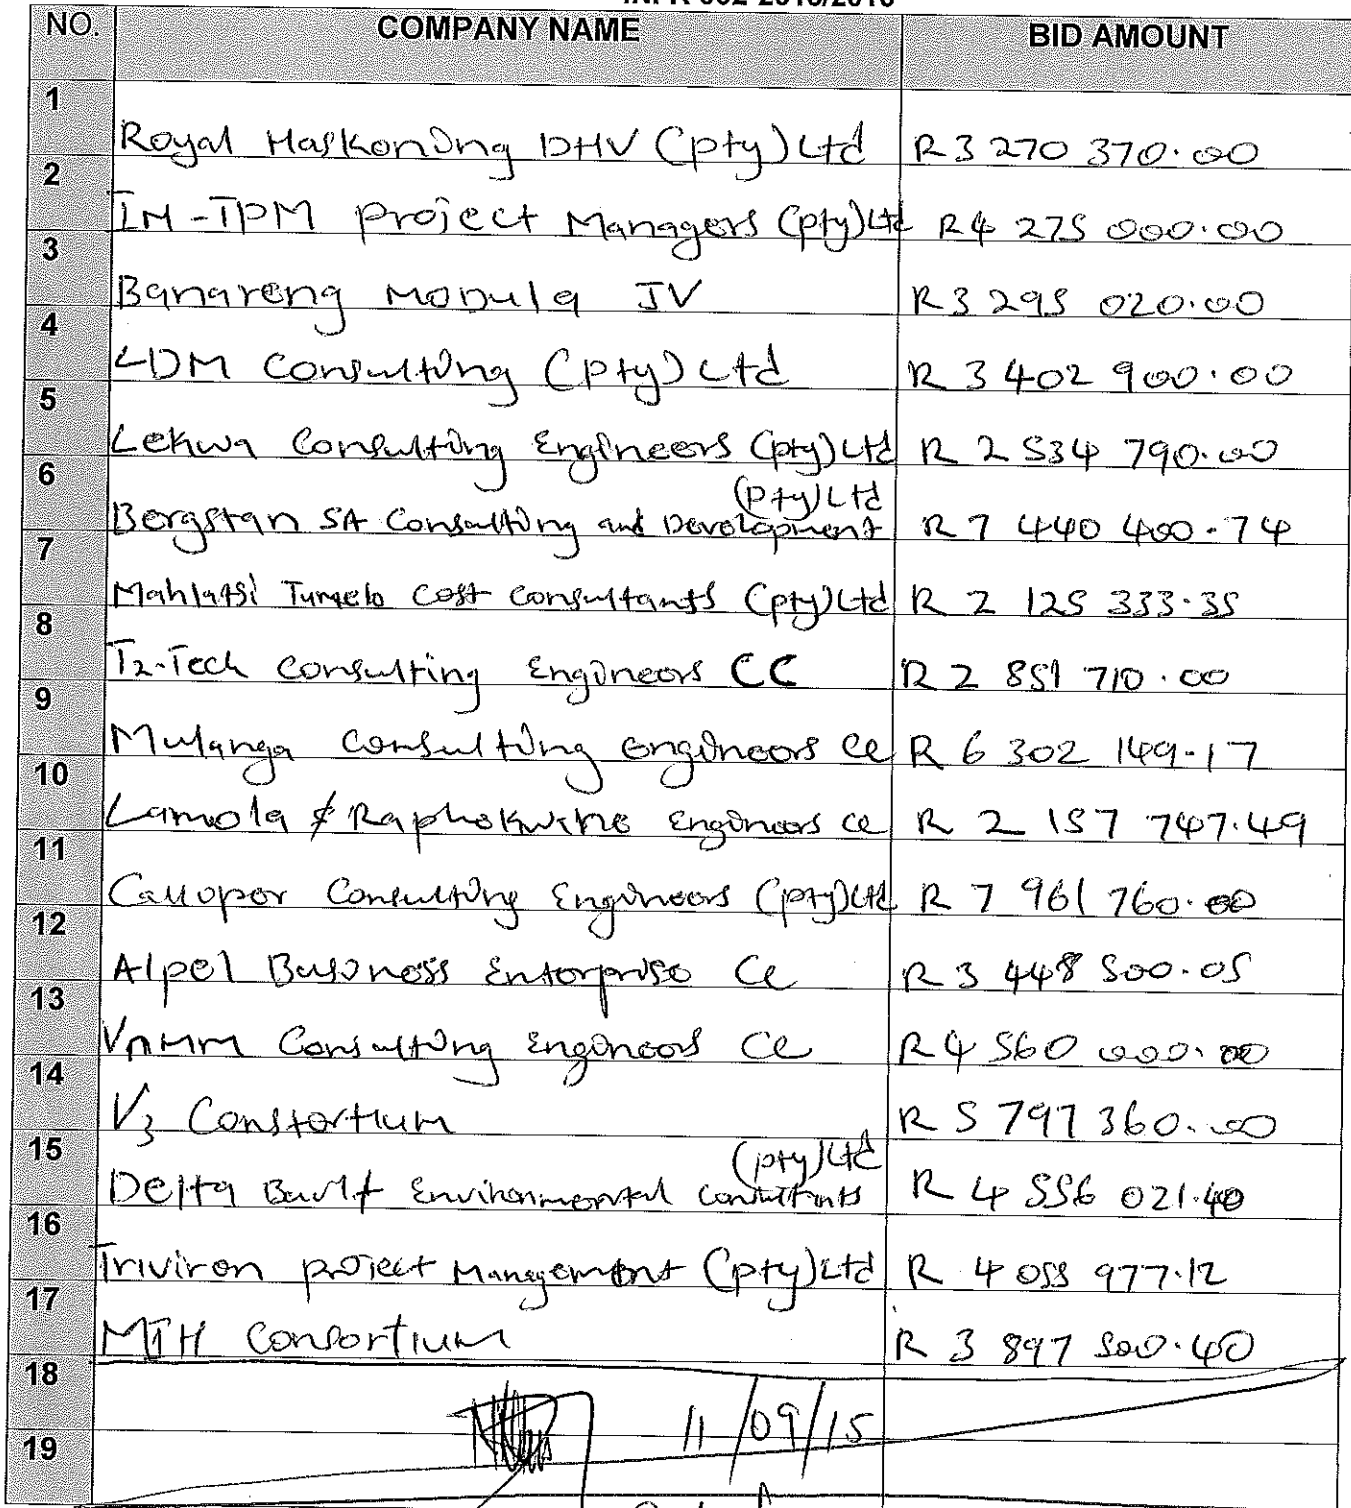 NO. COMPANY NAME BID AMOUNT
1 Royal Haskoning DHV (pty) Ltd R3 270 370.00
2 IM-TPM project Managers (pty) Ltd R4 275 000.00
3 Banareng Modula JV R3 295 020.00
4 LDM Consulting (pty) Ltd R 3 402 900.00
5 Lekwa Consulting Engineers (pty) Ltd R 2 534 790.00
(pty) Ltd
6 Bergstan SA Consulting and Development R 7 440 400.74
7 Mahlatsi Tumelo Cost Consultants (pty) Ltd R 2 125 333.35
8 T2-Tech Consulting Engineers CC R 2 851 710.00
9 Mulanga Consulting Engineers cc R 6 302 149-17
10 Lamola & Engineers cc R 2 157 747.49
11 Consulting Engineers (pty) Ltd R 7 961 760.00
12 Alpel Business Enterprise cc R 3 448 500.05
13 Consulting Engineers cc R4 560 000.00
14 V3 Constortium R 5 797 360.00
(pty) Ltd
15 Delta Built Environmental Consultants R 4 556 021.40
16 Triviron project Management (pty) Ltd R 4 055 977.12
17 MTH Consortium R 3 897 500.40
18
11/09/15
19